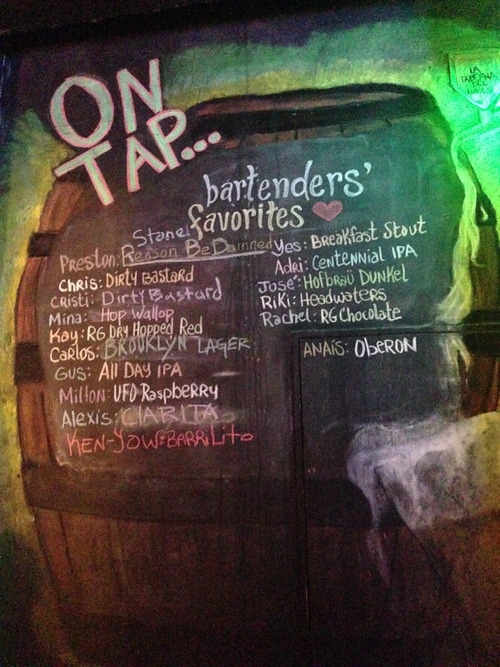 ON
TAP...
bartenders'
favorites
Preston: Stone Reason Be Damned
Chris: Dirty Bastard
Cristi: Dirty Bastard
Mina: Hop Wallop
Kay: RG Dry Hopped Red
Carlos: BROOKLYN LAGER
Gus: All DAY IPA
Milton: UFO Raspberry
Alexis: ClARITA
KEN-YOW: BARRiLito
Yes: Breakfast Stout
Adri: Centennial IPA
José: Hofbraü Dunkel
RiKi: Headwaters
Rachel: RG Chocolate
ANAÍS: OberON
LA